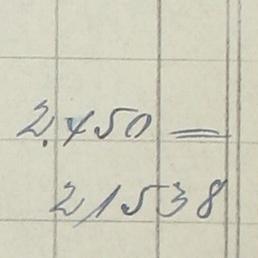 2.450 =
21538